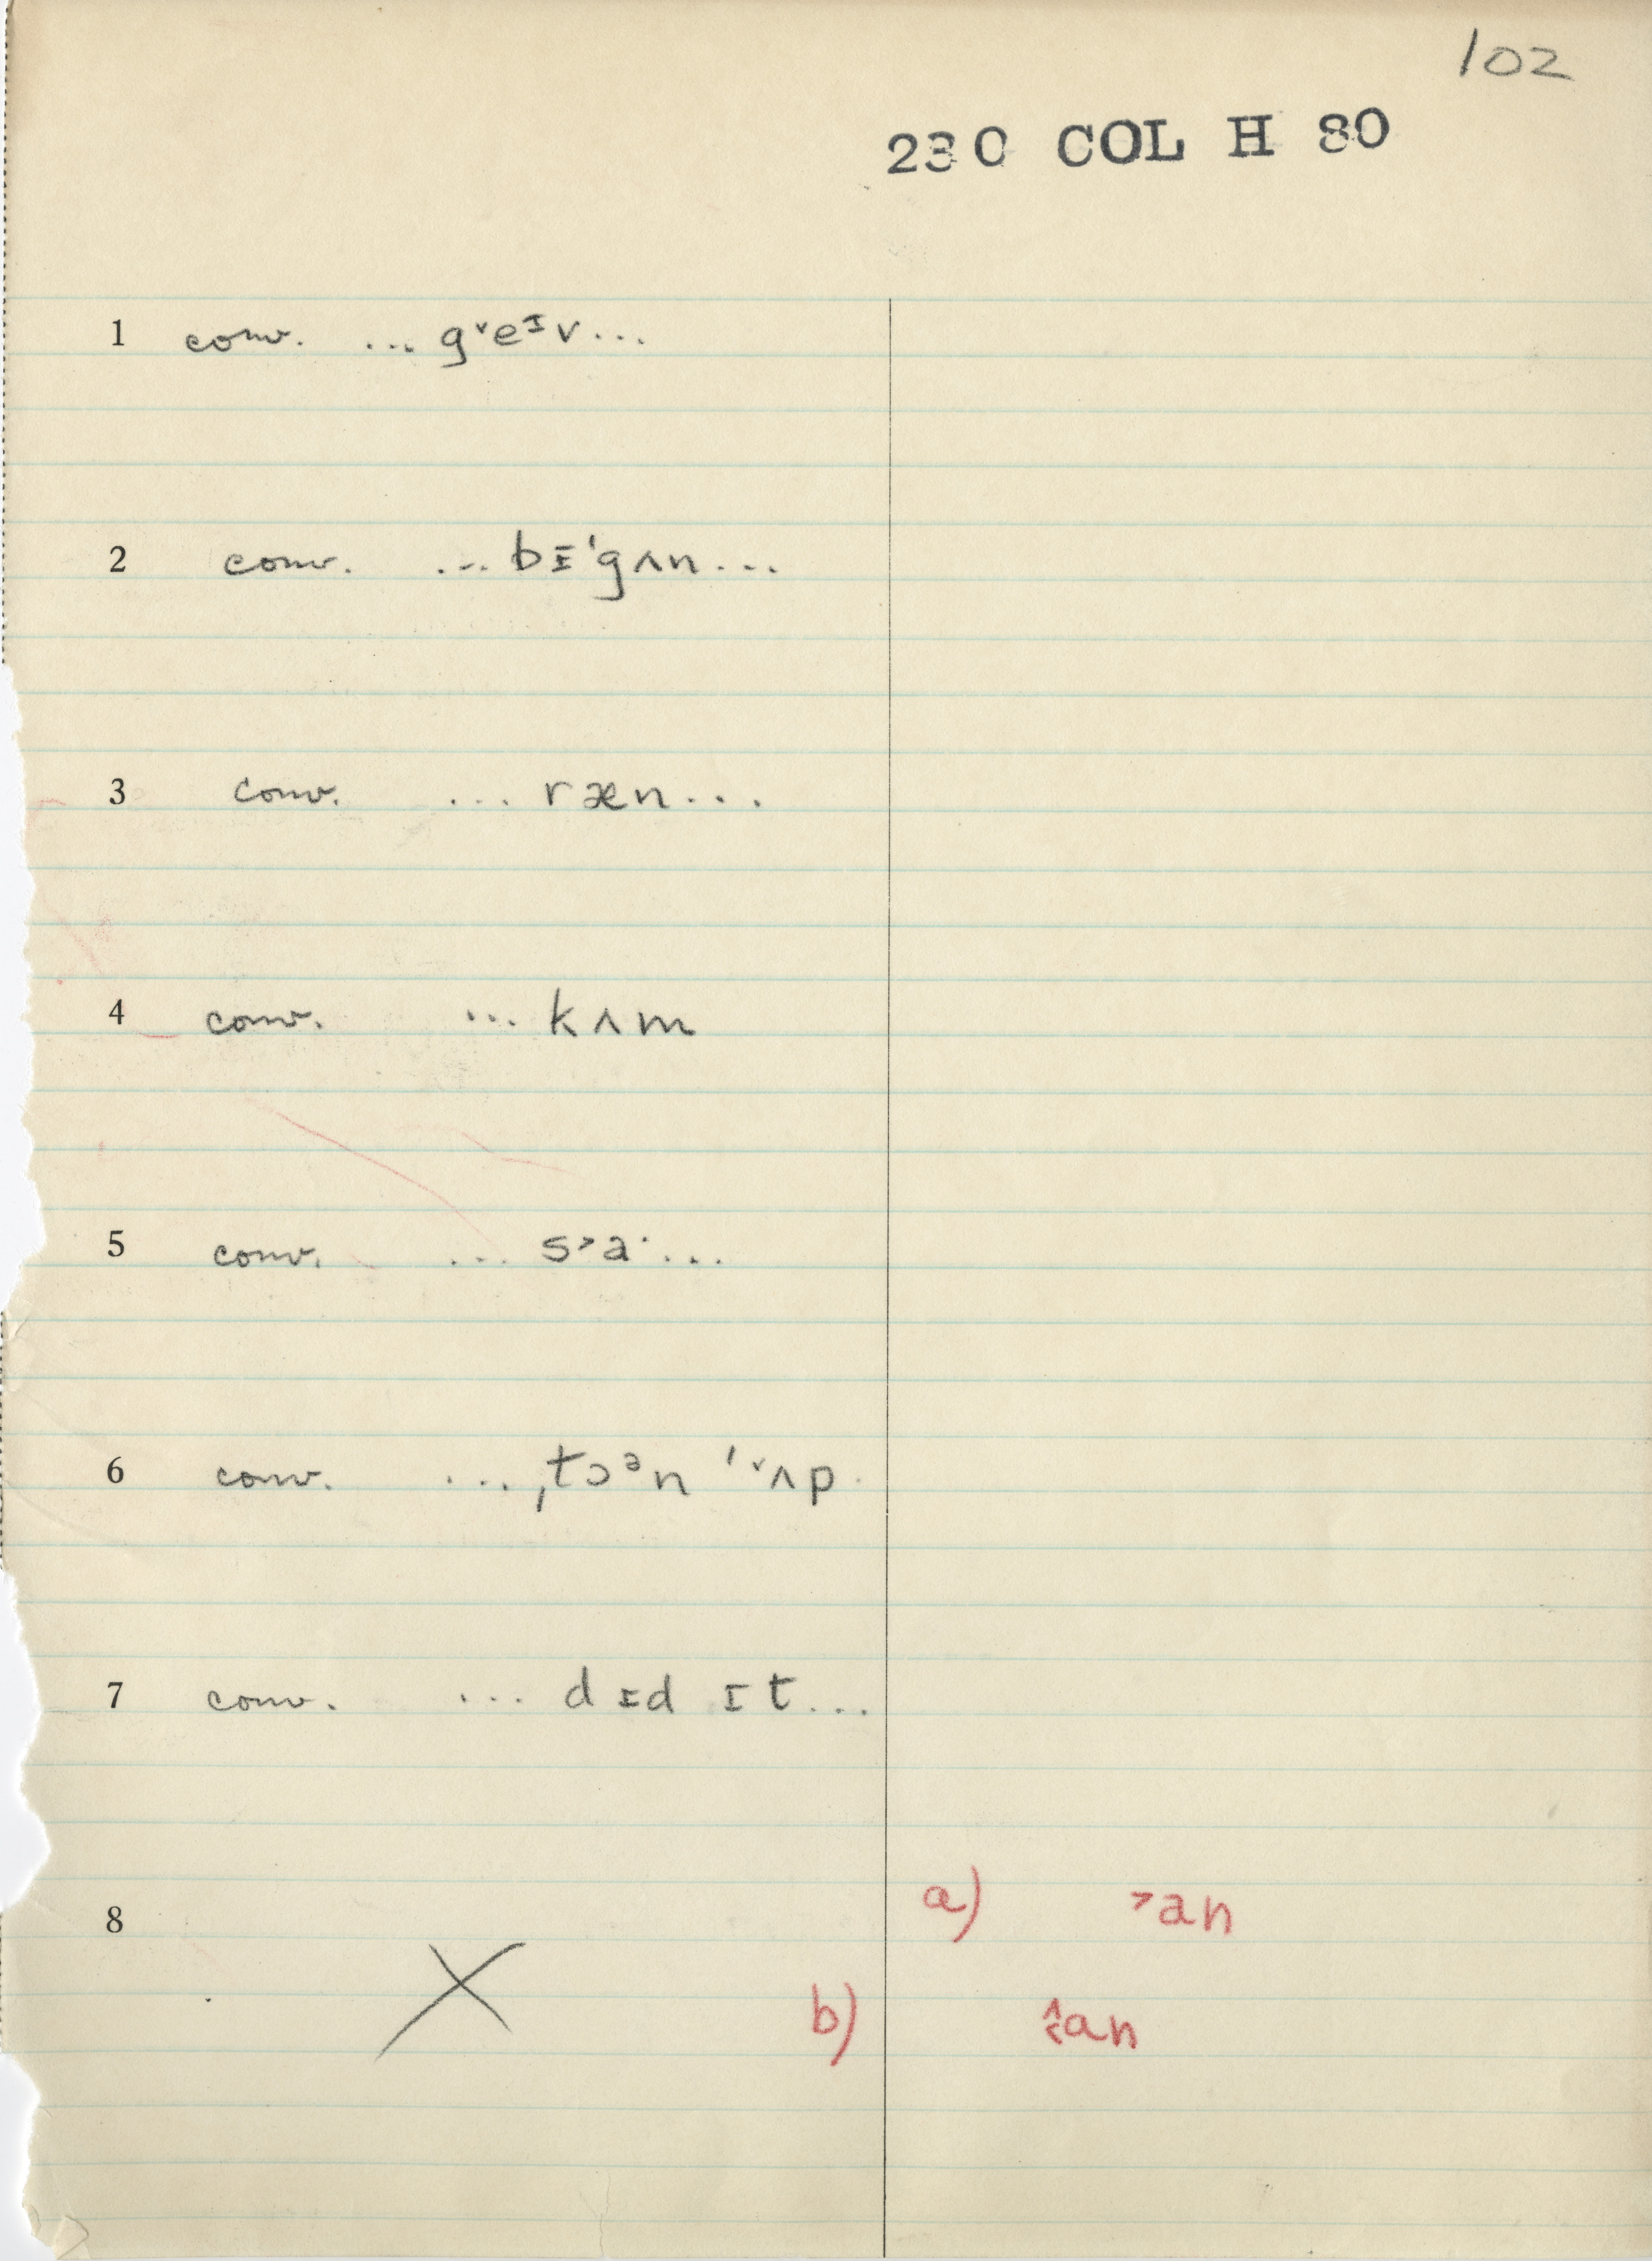 102
230 COL H 80
1 conv. ... gᵛeᶦv...
2 conv. ... bɪˈgʌn...
3 conv. ... ræn...
4 conv. ... kʌm
5 conv. ... s˃a˙...
6 conv. ... ˌtɔᵊn ˈᵛʌp
7 conv. ... dɪd ɪt...
8
a) ˃an
b) an